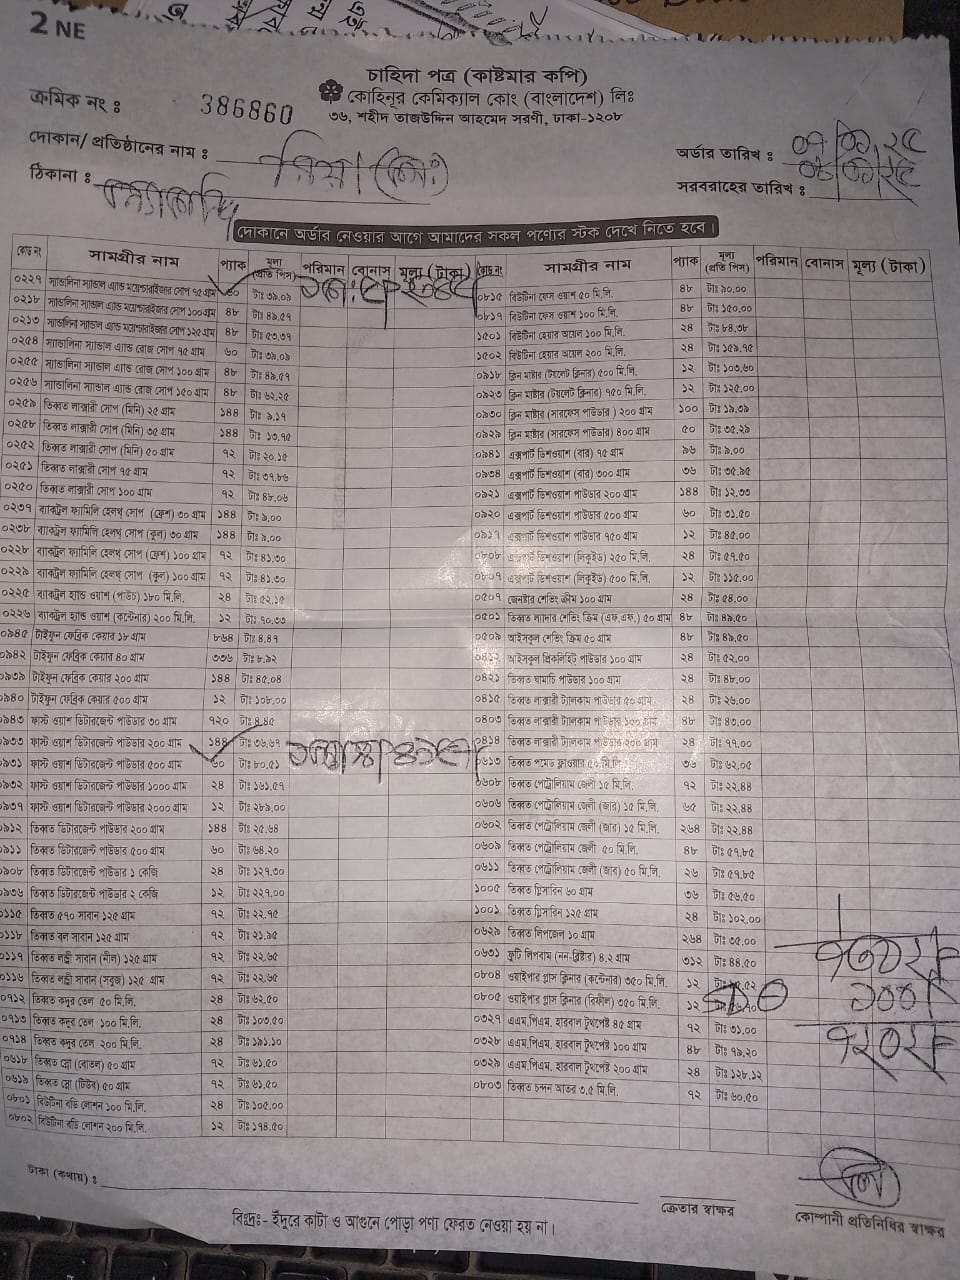 2 NE
চাহিদা পত্র (কাষ্টমার কপি)
ক্রমিক নং ঃ 386860
কোহিনূর কেমিক্যাল কোং (বাংলাদেশ) লিঃ
৩৬, শহীদ তাজউদ্দিন আহমেদ সরণী, ঢাকা-১২০৮
দোকান/ প্রতিষ্ঠানের নাম ঃ
অর্ডার তারিখ ঃ
ঠিকানা ঃ
সরবরাহের তারিখ ঃ
দোকানে অর্ডার নেওয়ার আগে আমাদের সকল পণ্যের স্টক দেখে নিতে হবে।
কোড নং সামগ্রীর নাম প্যাক মূল্য (প্রতি পিস) পরিমান বোনাস মূল্য (টাকা) কোড নং সামগ্রীর নাম প্যাক মূল্য (প্রতি পিস) পরিমান বোনাস মূল্য (টাকা)
স্যান্ডালিনা স্যান্ডাল এ্যান্ড ময়েশ্চারাইজার সোপ ৭৫ গ্রাম টাঃ ৩৯.০৯
স্যান্ডালিনা স্যান্ডাল এ্যান্ড ময়েশ্চারাইজার সোপ ১০০ গ্রাম ৪৮ টাঃ ৪৯.৫৭
স্যান্ডালিনা স্যান্ডাল এ্যান্ড ময়েশ্চারাইজার সোপ ১২৫ গ্রাম ৪৮
০২৫৪ স্যান্ডালিনা স্যান্ডাল এ্যান্ড রোজ সোপ ৭৫ গ্রাম ৬০ টাঃ ৩৯.০৯
০২৫৫ স্যান্ডালিনা স্যান্ডাল এ্যান্ড রোজ সোপ ১০০ গ্রাম ৪৮ টাঃ ৪৯.৫৭
০২৫৬ স্যান্ডালিনা স্যান্ডাল এ্যান্ড রোজ সোপ ১৫০ গ্রাম ৪৮ টাঃ ৬২.২৫
০২৫৯ তিব্বত লাক্সারী সোপ (মিনি) ২৫ গ্রাম ১৪৪ টাঃ ৯.১৭
০২৫৮ তিব্বত লাক্সারী সোপ (মিনি) ৩৫ গ্রাম ১৪৪ টাঃ ১৩.৭৫
০২৫২ তিব্বত লাক্সারী সোপ (মিনি) ৫০ গ্রাম ৭২ টাঃ ২০.১৫
০২৫১ তিব্বত লাক্সারী সোপ ৭৫ গ্রাম ৭২ টাঃ ৩৭.৮৬
০২৫০ তিব্বত লাক্সারী সোপ ১০০ গ্রাম ৭২ টাঃ ৪৮.০৬
০২৩৭ ব্যাকট্রল ফ্যামিলি হেলথ্ সোপ (ফ্রেশ) ৩০ গ্রাম ১৪৪ টাঃ ৯.০০
০২৩৮ ব্যাকট্রল ফ্যামিলি হেলথ্ সোপ (কুল) ৩০ গ্রাম ১৪৪ টাঃ ৯.০০
০২২৮ ব্যাকট্রল ফ্যামিলি হেলথ্ সোপ (ফ্রেশ) ১০০ গ্রাম ৭২ টাঃ ৪১.৩০
০২২৯ ব্যাকট্রল ফ্যামিলি হেলথ্ সোপ (কুল) ১০০ গ্রাম ৭২ টাঃ ৪১.৩০
০২২৫ ব্যাকট্রল হ্যান্ড ওয়াশ (পাউচ) ১৮০ মি.লি. ২৪ টাঃ ৫২.১৫
০২২৬ ব্যাকট্রল হ্যান্ড ওয়াশ (কন্টেনার) ২০০ মি.লি. ১২ টাঃ ৭০.৩৩
০৯৪৫ টাইফুন ফেব্রিক কেয়ার ১৮ গ্রাম ৮৬৪ টাঃ ৪.৪৭
০৯৪২ টাইফুন ফেব্রিক কেয়ার ৪০ গ্রাম ৩৩৬ টাঃ ৮.৯২
০৯৩৯ টাইফুন ফেব্রিক কেয়ার ২০০ গ্রাম ১৪৪ টাঃ ৪৫.০৪
০৯৪০ টাইফুন ফেব্রিক কেয়ার ৫০০ গ্রাম ১২ টাঃ ১০৮.০০
০৯৪৩ ফাস্ট ওয়াশ ডিটারজেন্ট পাউডার ৩০ গ্রাম ৭২০ টাঃ ৪.৪৫
০৯৩৩ ফাস্ট ওয়াশ ডিটারজেন্ট পাউডার ২০০ গ্রাম ১৪৪ টাঃ ৩৬.৬৭
০৯৩১ ফাস্ট ওয়াশ ডিটারজেন্ট পাউডার ৫০০ গ্রাম ৬০ টাঃ ৮০.৫১
০৯৩২ ফাস্ট ওয়াশ ডিটারজেন্ট পাউডার ১০০০ গ্রাম ২৪ টাঃ ১৬১.৫৭
০৯৩৭ ফাস্ট ওয়াশ ডিটারজেন্ট পাউডার ২০০০ গ্রাম ১২ টাঃ ২৮৯.০০
০৯১২ তিব্বত ডিটারজেন্ট পাউডার ২০০ গ্রাম ১৪৪ টাঃ ২৫.৬৪
০৯১১ তিব্বত ডিটারজেন্ট পাউডার ৫০০ গ্রাম ৬০ টাঃ ৬৪.২০
০৯০৮ তিব্বত ডিটারজেন্ট পাউডার ১ কেজি ২৪ টাঃ ১২৭.৩০
০৯৩৬ তিব্বত ডিটারজেন্ট পাউডার ২ কেজি ১২ টাঃ ২২৭.০০
তিব্বত ৫৭০ সাবান ১২৫ গ্রাম ৭২ টাঃ ২২.৭৫
তিব্বত বল সাবান ১২৫ গ্রাম ৭২ টাঃ ২১.৯৫
তিব্বত লন্ড্রী সাবান (নীল) ১২৫ গ্রাম ৭২ টাঃ ২২.৬৫
তিব্বত লন্ড্রী সাবান (সবুজ) ১২৫ গ্রাম ৭২ টাঃ ২২.৬৫
০৭১২ তিব্বত কদুর তেল ৫০ মি.লি. ২৪ টাঃ ৬২.৫০
০৭১৩ তিব্বত কদুর তেল ১০০ মি.লি. ২৪ টাঃ ১০৩.৫০
০৭১৪ তিব্বত কদুর তেল ২০০ মি.লি. ২৪ টাঃ ১৯১.১০
০৬১৮ তিব্বত স্নো (বোতল) ৫০ গ্রাম ৭২ টাঃ ৬১.৫০
০৬১৯ তিব্বত স্নো (টিউব) ৫০ গ্রাম ৭২ টাঃ ৬১.৫০
০৮০১ বিউটিনা বডি লোশন ১০০ মি.লি. ২৪ টাঃ ১০৫.০০
০৮০২ বিউটিনা বডি লোশন ২০০ মি.লি. ১২ টাঃ ১৭৪.৫০
০৮১৫ বিউটিনা ফেস ওয়াশ ৫০ মি.লি. ৪৮ টাঃ ৯০.০০
০৮১৭ বিউটিনা ফেস ওয়াশ ১০০ মি.লি. ৪৮ টাঃ ১৫০.০০
১৫০১ বিউটিনা হেয়ার অয়েল ১০০ মি.লি. ২৪ টাঃ ৮৪.৩৮
১৫০২ বিউটিনা হেয়ার অয়েল ২০০ মি.লি. ২৪ টাঃ ১৫৯.৭৫
০৯১৮ ক্লিন মাষ্টার (টয়লেট ক্লিনার) ৫০০ মি.লি. ১২ টাঃ ১০৩.৬০
০৯২৩ ক্লিন মাষ্টার (টয়লেট ক্লিনার) ৭৫০ মি.লি. ১২ টাঃ ১২৫.০০
০৯৩০ ক্লিন মাষ্টার (সারফেস পাউডার) ২০০ গ্রাম ১০০ টাঃ ১৯.৩৯
০৯২৯ ক্লিন মাষ্টার (সারফেস পাউডার) ৪০০ গ্রাম ৫০ টাঃ ৩৫.২৯
০৯৪১ এক্সপার্ট ডিশওয়াশ (বার) ৭৫ গ্রাম ৯৬ টাঃ ৯.০০
০৯৩৪ এক্সপার্ট ডিশওয়াশ (বার) ৩০০ গ্রাম ৩৬ টাঃ ৩৫.৯৫
০৯২১ এক্সপার্ট ডিশওয়াশ পাউডার ২০০ গ্রাম ১৪৪ টাঃ ১২.৩৩
০৯২০ এক্সপার্ট ডিশওয়াশ পাউডার ৫০০ গ্রাম ৬০ টাঃ ৩১.৫০
এক্সপার্ট ডিশওয়াশ পাউডার ৭৫০ গ্রাম ১২ টাঃ ৪৫.০০
এক্সপার্ট ডিশওয়াশ (লিকুইড) ২৫০ মি.লি. ২৪ টাঃ ৫৭.৫০
এক্সপার্ট ডিশওয়াশ (লিকুইড) ৫০০ মি.লি. ১২ টাঃ ১১৫.০০
০৫০৭ জেনস্টার শেভিং ক্রীম ১০০ গ্রাম ২৪ টাঃ ৫৪.০০
০৫০১ ৫০ গ্রাম ৪৮ টাঃ ৪৯.৫০
০৫০৯ আইসকুল শেভিং ক্রিম ৫০ গ্রাম ৪৮ টাঃ ৪৯.৫০
আইসকুল প্রিকলিহিট পাউডার ১০০ গ্রাম ২৪ টাঃ ৫২.০০
০৪২১ তিব্বত ঘামাচি পাউডার ১০০ গ্রাম ২৪ টাঃ ৪৮.০০
০৪১৫ তিব্বত লাক্সারী ট্যালকাম পাউডার ৫০ গ্রাম ২৪ টাঃ ২৬.০০
০৪০৩ তিব্বত লাক্সারী ট্যালকাম পাউডার ১০০ গ্রাম ৪৮ টাঃ ৪৩.০০
০৪১৪ তিব্বত লাক্সারী ট্যালকাম পাউডার ২০০ গ্রাম ২৪ টাঃ ৭৭.০০
তিব্বত পমেড ফ্লাওয়ার ৫০ মি.লি. ৩৬ টাঃ ৬২.০৫
০৬০৮ তিব্বত পেট্রোলিয়াম জেলী ১৫ মি.লি. ৭২ টাঃ ২২.৪৪
০৬০৬ তিব্বত পেট্রোলিয়াম জেলী (জার) ১৫ মি.লি. ৬৫ টাঃ ২২.৪৪
০৬০২ তিব্বত পেট্রোলিয়াম জেলী (জার) ১৫ মি.লি. ২৬৪ টাঃ ২২.৪৪
০৬০৯ তিব্বত পেট্রোলিয়াম জেলী ৫০ মি.লি. ৪৮ টাঃ ৫৭.৮৫
০৬১১ তিব্বত পেট্রোলিয়াম জেলী (জার) ৫০ মি.লি. ২৬ টাঃ ৫৭.৮৫
১০০৫ তিব্বত গ্লিসারিন ৬০ গ্রাম ৩৬ টাঃ ৫৬.৫০
১০০১ তিব্বত গ্লিসারিন ১২৫ গ্রাম ২৪ টাঃ ১০২.০০
০৬২৯ তিব্বত লিপজেল ১০ গ্রাম ২৬৪ টাঃ ৩৫.০০
০৬৩১ ফ্রুটি লিপবাম (নন-ব্লিষ্টার) ৪.২ গ্রাম ৩১২ টাঃ ৪৪.৫০
০৮০৪ ওয়াইপার গ্লাস ক্লিনার (কন্টেনার) ৩৫০ মি.লি. ১২
০৮০৫ ওয়াইপার গ্লাস ক্লিনার (রিফিল) ৩৫০ মি.লি. ১২
০৩২৭ এএম.পিএম. হারবাল টুথপেষ্ট ৪৫ গ্রাম ৭২ টাঃ ৩১.০০
০৩২৮ এএম.পিএম. হারবাল টুথপেষ্ট ১০০ গ্রাম ৪৮ টাঃ ৭৯.২০
০৩২৯ এএম.পিএম. হারবাল টুথপেষ্ট ২০০ গ্রাম ২৪ টাঃ ১২৮.১২
০৮০৩ তিব্বত চন্দন আতর ৩.৫ মি.লি. ৭২ টাঃ ৬০.৫০
টাকা (কথায়) ঃ
ক্রেতার স্বাক্ষর
কোম্পানী প্রতিনিধির স্বাক্ষর
বিঃদ্রঃ- ইঁদুরে কাটা ও আগুনে পোড়া পণ্য ফেরত নেওয়া হয় না।